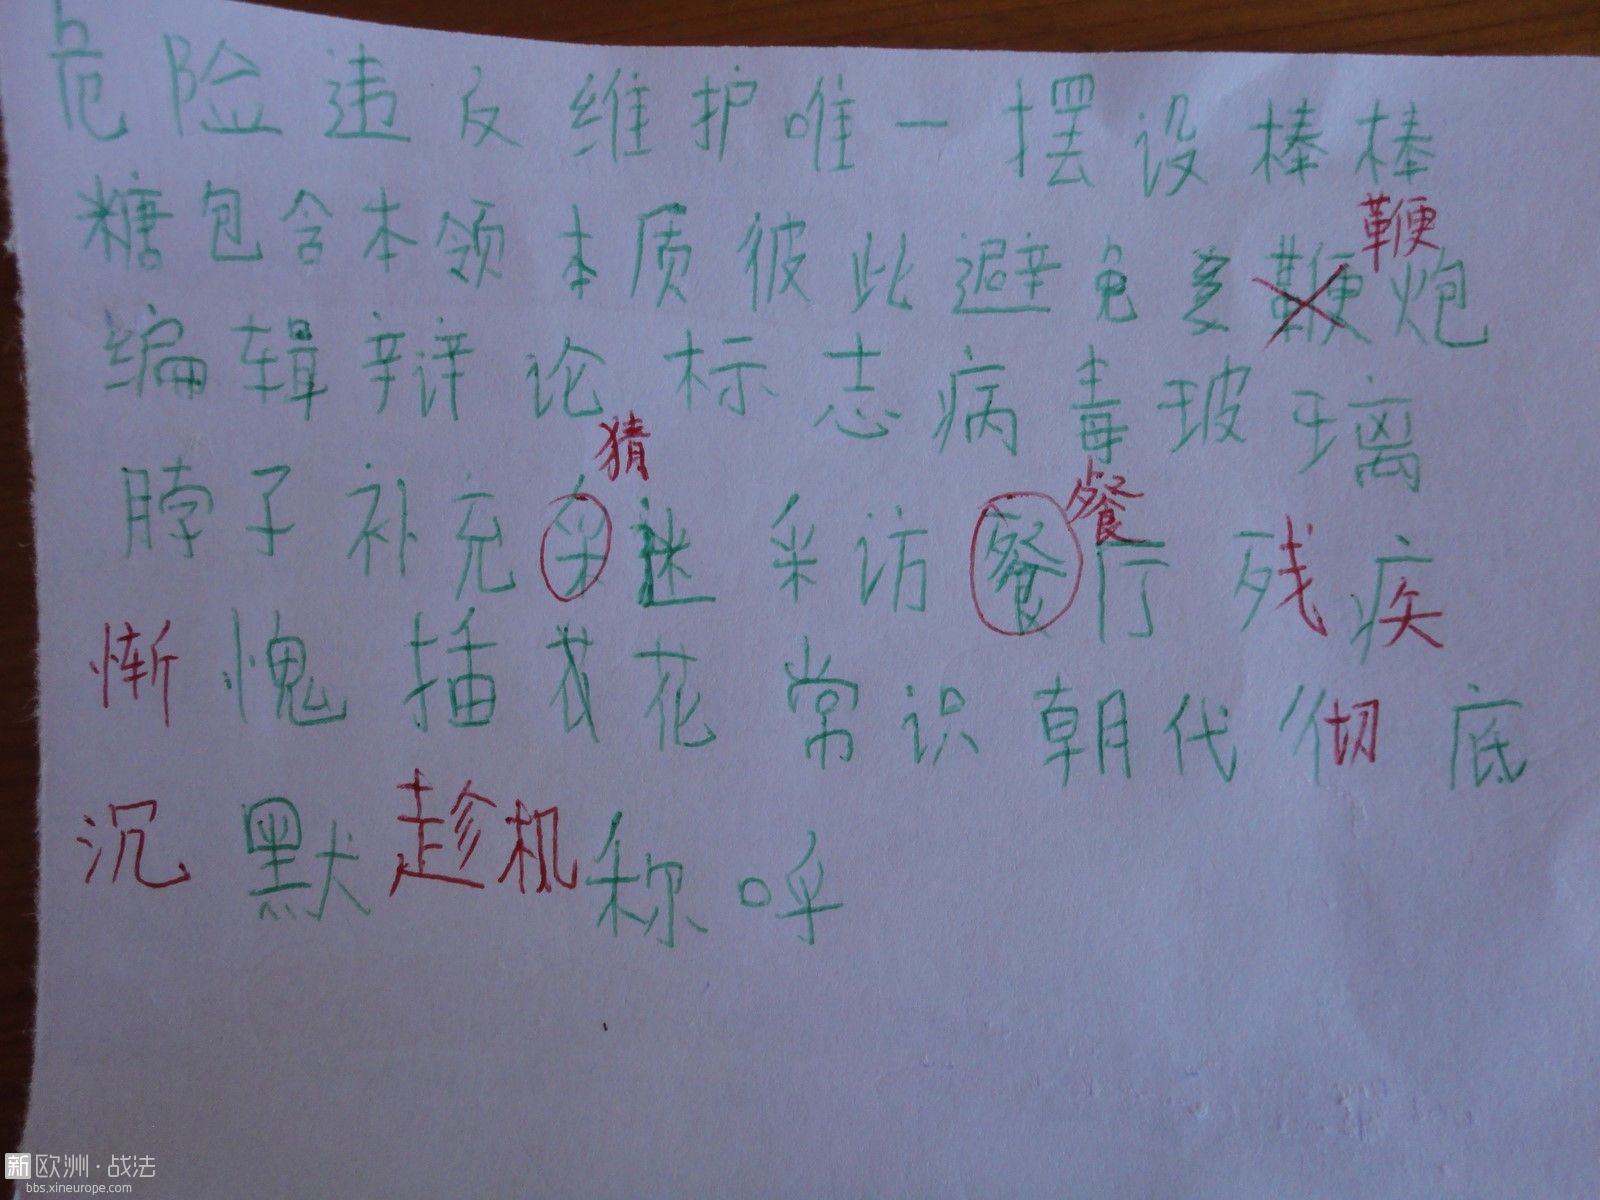 危险违反维护唯一摆设棒棒
糖包含本领本质彼此避免鞭炮
鞭
编辑辩论标志病毒玻璃
猜
餐
脖子补充采谜采访餐厅残疾
惭愧插花常识朝代彻底
沉默趁机称呼
新欧洲·战法
bbs.xineurope.com